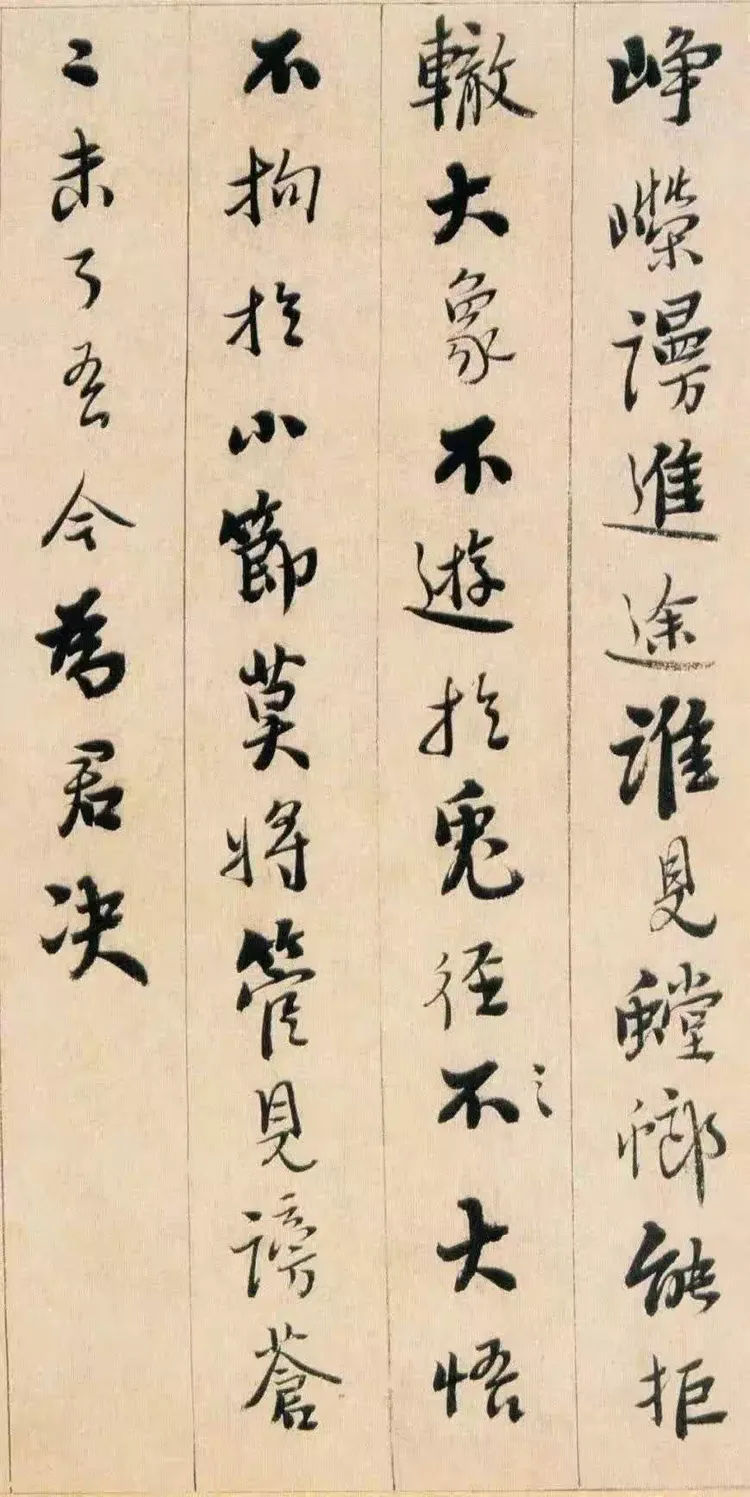 崢嶸謾進途誰見螳螂能拒
轍大象不遊於兔徑不大悟
不拘於小節莫將管見謗蒼
〻未了吾今為君决